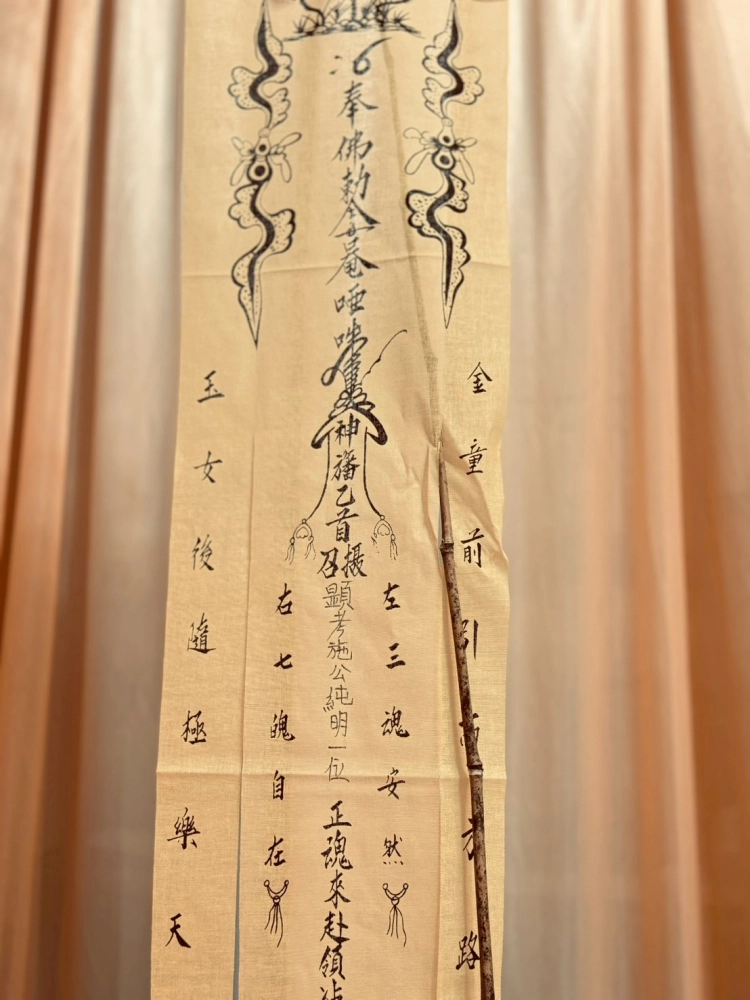 金童前引西方路
左三魂安然
奉佛勅令唵哑吽神旛乙首摄召顯考施公純明一位正魂來赴領沾
右七魄自在
玉女後隨極樂天